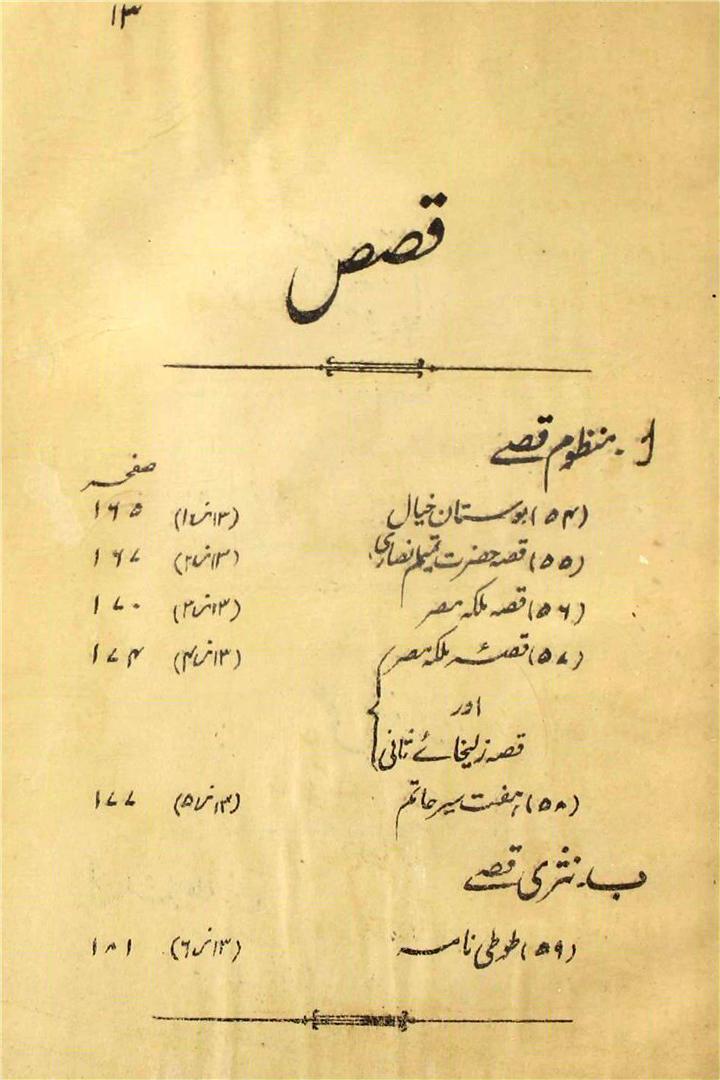 ۱۳
قصص
ا۔ منظوم قصے
صفحہ
(۵۴) بوستان خیال (۱۳ نس۱) ۱۶۵
(۵۵) قصہ حضرت تمیم انصاری (۱۳ نس۲) ۱۶۷
(۵۶) قصہ ملکہ مصر (۱۳ نس۳) ۱۷۰
(۵۷) قصۂ ملکہ مصر (۱۳ نس۴) ۱۷۴
اور
قصہ زلیخائے ثانی
(۵۸) ہفت سیر حاتم (۱۳ نس۵) ۱۷۷
ب۔ نثری قصے
(۵۹) طوطی نامہ (۱۳ نس۶) ۱۸۱